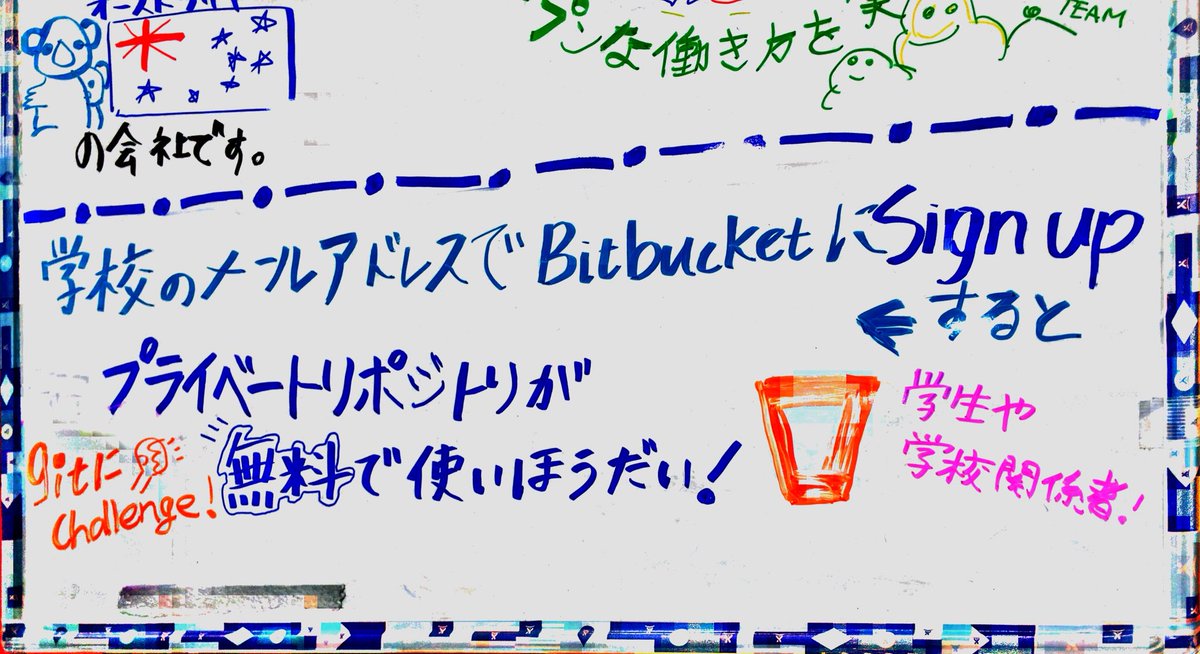 プンな働き方を
TEAM
の会社です。
学校のメールアドレスでBitbucketにSign up
すると
プライベートリポジトリが
無料で使いほうだい!
gitに
challenge!
学生や
学校関係者!